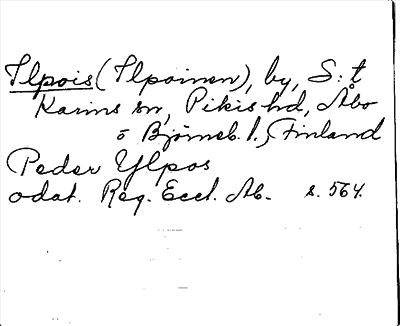 Ilpois (Ilpoinen), by, S:t
Karins sn, Pikis hd, Åbo
o Björneb. l., Finland
Peder Ylpos
odat. Reg. Eccl. Ab. s. 564.